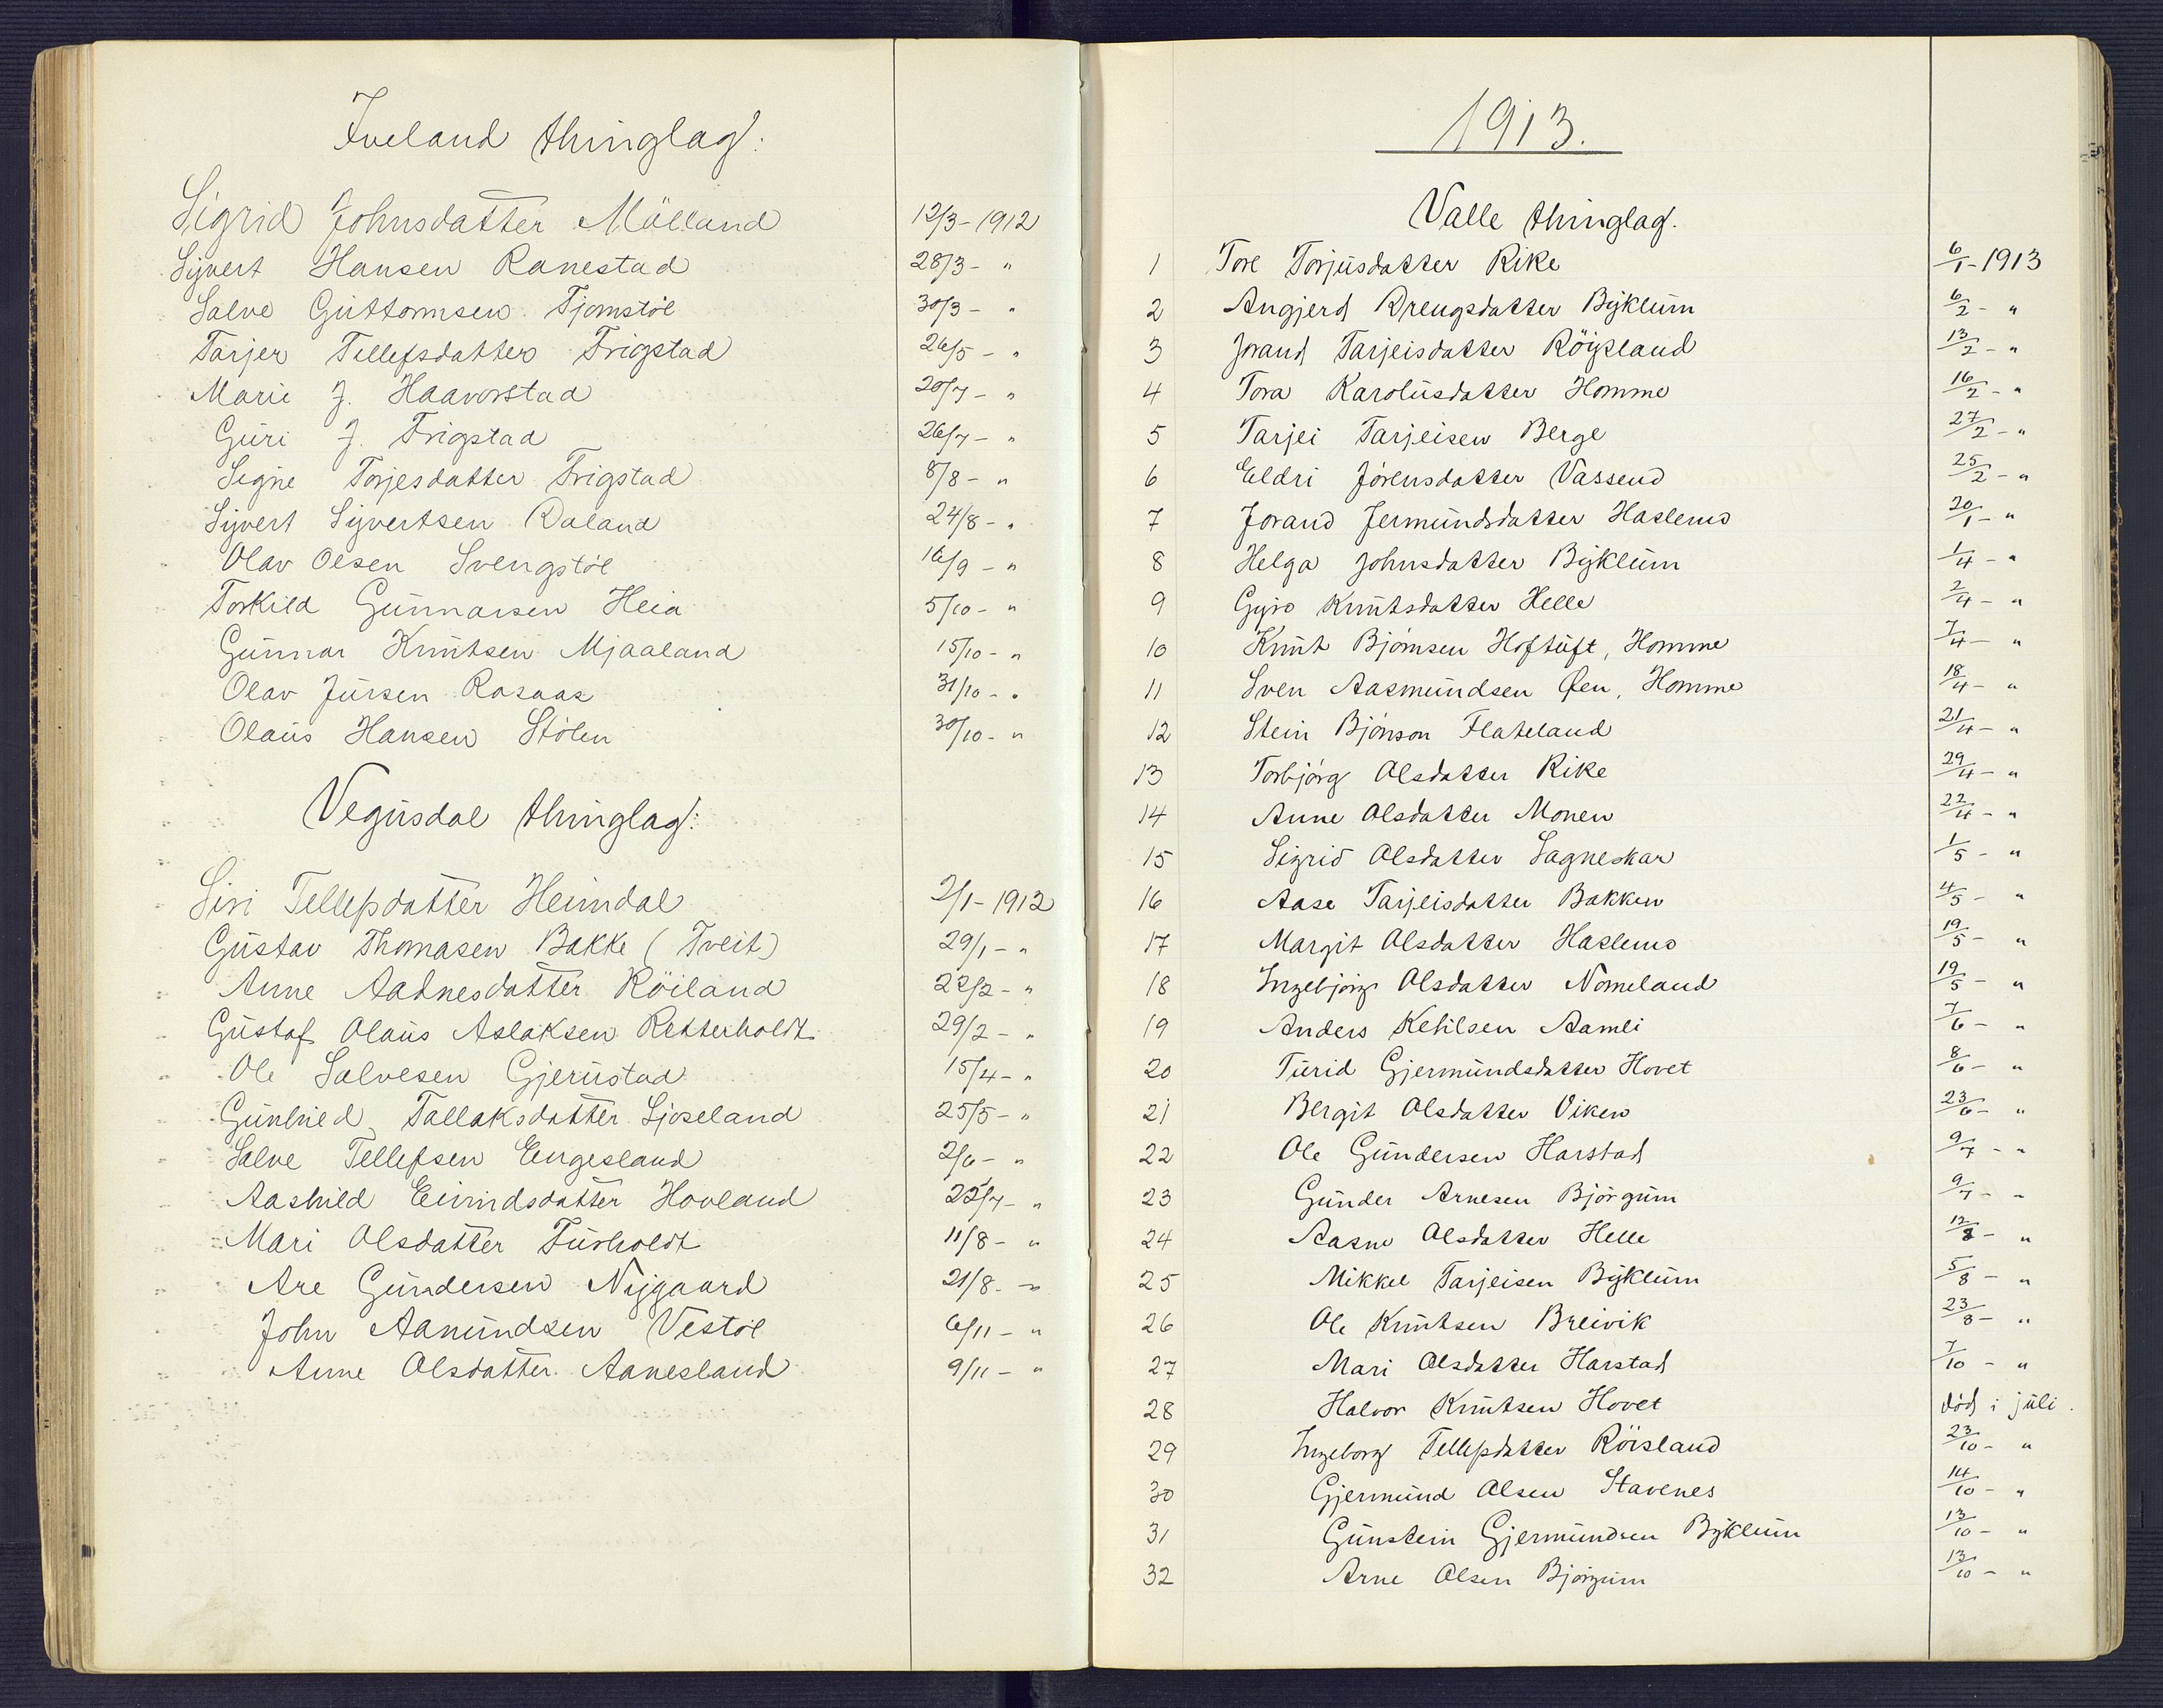 Iveland thinglag:
Sigrid Johnsdatter Mölland 12/3-1912
Syvert Hansen Ranestad 28/3- "
Salve Guttormsen Tjomstöl 30/3- "
Tarjer Tellefsdatter Frigstad 26/5- "
Marie J. Haavorstad 20/7- "
Guri J. Frigstad 26/7- "
Signe Torjesdatter Frigstad 8/8- "
Syvert Syvertsen Daland 24/8- "
Olav Olsen Svengstöl 16/9- "
Torkild Gunnarsen Heia 5/10- "
Gunnar Knutsen Mjaaland 15/10- "
Olav Jursen Rosaas 31/10- "
Olaus Hansen Stölen 30/10- "
Vegusdal thinglag:
Siri Tellefsdatter Heimdal 2/1-1912
Gustav Thomasen Bakke (Tveit) 29/1- "
Anne Aadnesdatter Röiland 22/2- "
Gustaf Olaus Aslaksen Retterholdt 29/2- "
Ole Salvesen Gjerustad 15/4- "
Gunhild Tallaksdatter Ljoseland 25/5- "
Salve Tellefsen Engesland 2/6- "
Aashild Eivindsdatter Hovland 22/7- "
Mari Olsdatter Furholdt 11/8- "
Are Gundersen Nygaard 21/8- "
John Aanundsen Vestöl 6/11- "
Anne Olsdatter Aanesland 9/11- "
1913.
Valle thinglag.
1 Tore Torjusdatter Rike 6/1-1913
2 Angjerd Drengsdatter Byklum 6/2- "
3 Jorand Tarjeisdatter Röysland 13/2- "
4 Tora Karolusdatter Homme 16/2- "
5 Tarjei Tarjeisen Berge 27/2- "
6 Eldri Jörensdatter Vassend 25/2- "
7 Jorand Jermundsdatter Haslemo 20/1- "
8 Helga Johnsdatter Byklum 1/4- "
9 Gyro Knutsdatter Helle 2/4- "
10 Knut Björnsen Hoftuft, Homme 7/4- "
11 Sven Aasmundsen Øen, Homme 18/4- "
12 Stein Bjönson Flateland 21/4- "
13 Torbjörg Olsdatter Rike 29/4- "
14 Anne Olsdatter Monen 22/4- "
15 Sigrid Olsdatter Sagneskar 1/5- "
16 Aase Tarjeisdatter Bakken 4/5- "
17 Margit Olsdatter Haslemo 19/5- "
18 Ingebjörg Olsdatter Nomeland 19/5- "
19 Anders Ketilsen Aamli 7/6- "
20 Turid Gjermundsdatter Hovet 8/6- "
21 Bergit Olsdatter Viken 23/6- "
22 Ole Gundersen Harstad 9/7- "
23 Gunder Arnesen Björgum 9/7- "
24 Aasne Olsdatter Helle 12/8- "
25 Mikkel Tarjeisen Byklum 5/8- "
26 Ole Knutsen Breivik 23/8- "
27 Mari Olsdatter Harstad 7/10- "
28 Halvor Knutsen Hovet död i juli.
29 Ingeborg Tellefsdatter Röisland 23/10- "
30 Gjermund Olsen Stavenes 14/10- "
31 Gunstein Gjermundsen Byklum 13/10- "
32 Arne Olsen Björgum 13/10- "